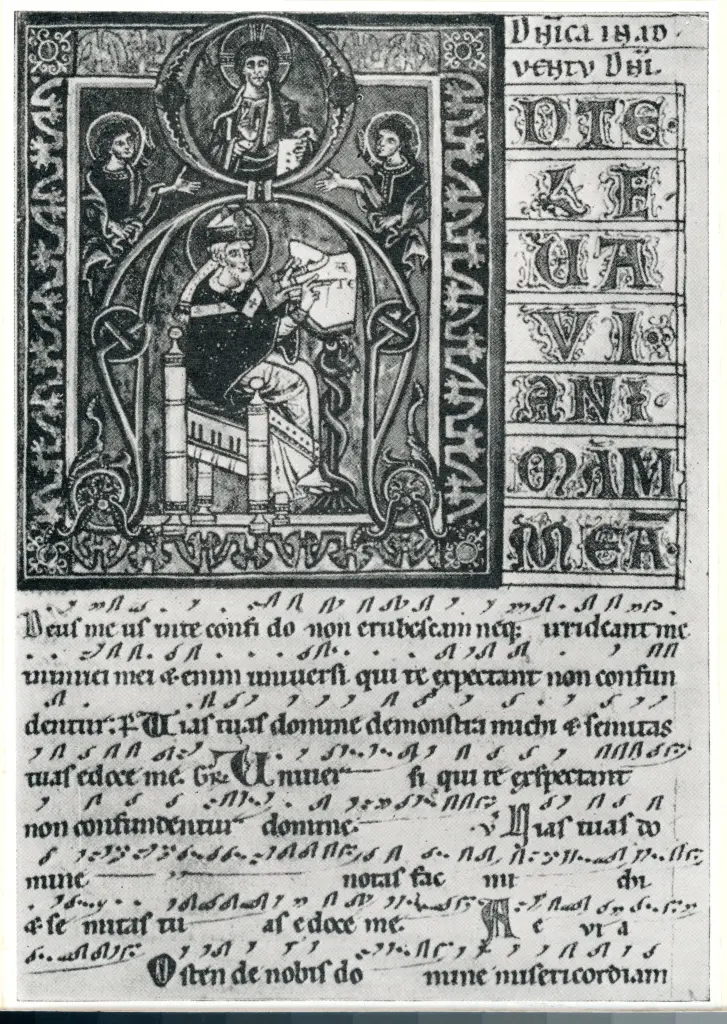 DNICA IN AD
VENTV DNI.
D TE
LE
UA
VI
ANI
MAM
MEA
Deus me us in te confi do non erubescam neq; irrideant me
inimici mei & enim universi qui te expectant non confun
dentur. P Uias tuas domine demonstra michi & semitas
tuas edoce me. GR Univer si qui te exspectant
non confundentur domine. V Uias tuas do
mine notas fac mi chi
& se mitas tu as edoce me. A e v i a
Osten de nobis do mine misericordiam